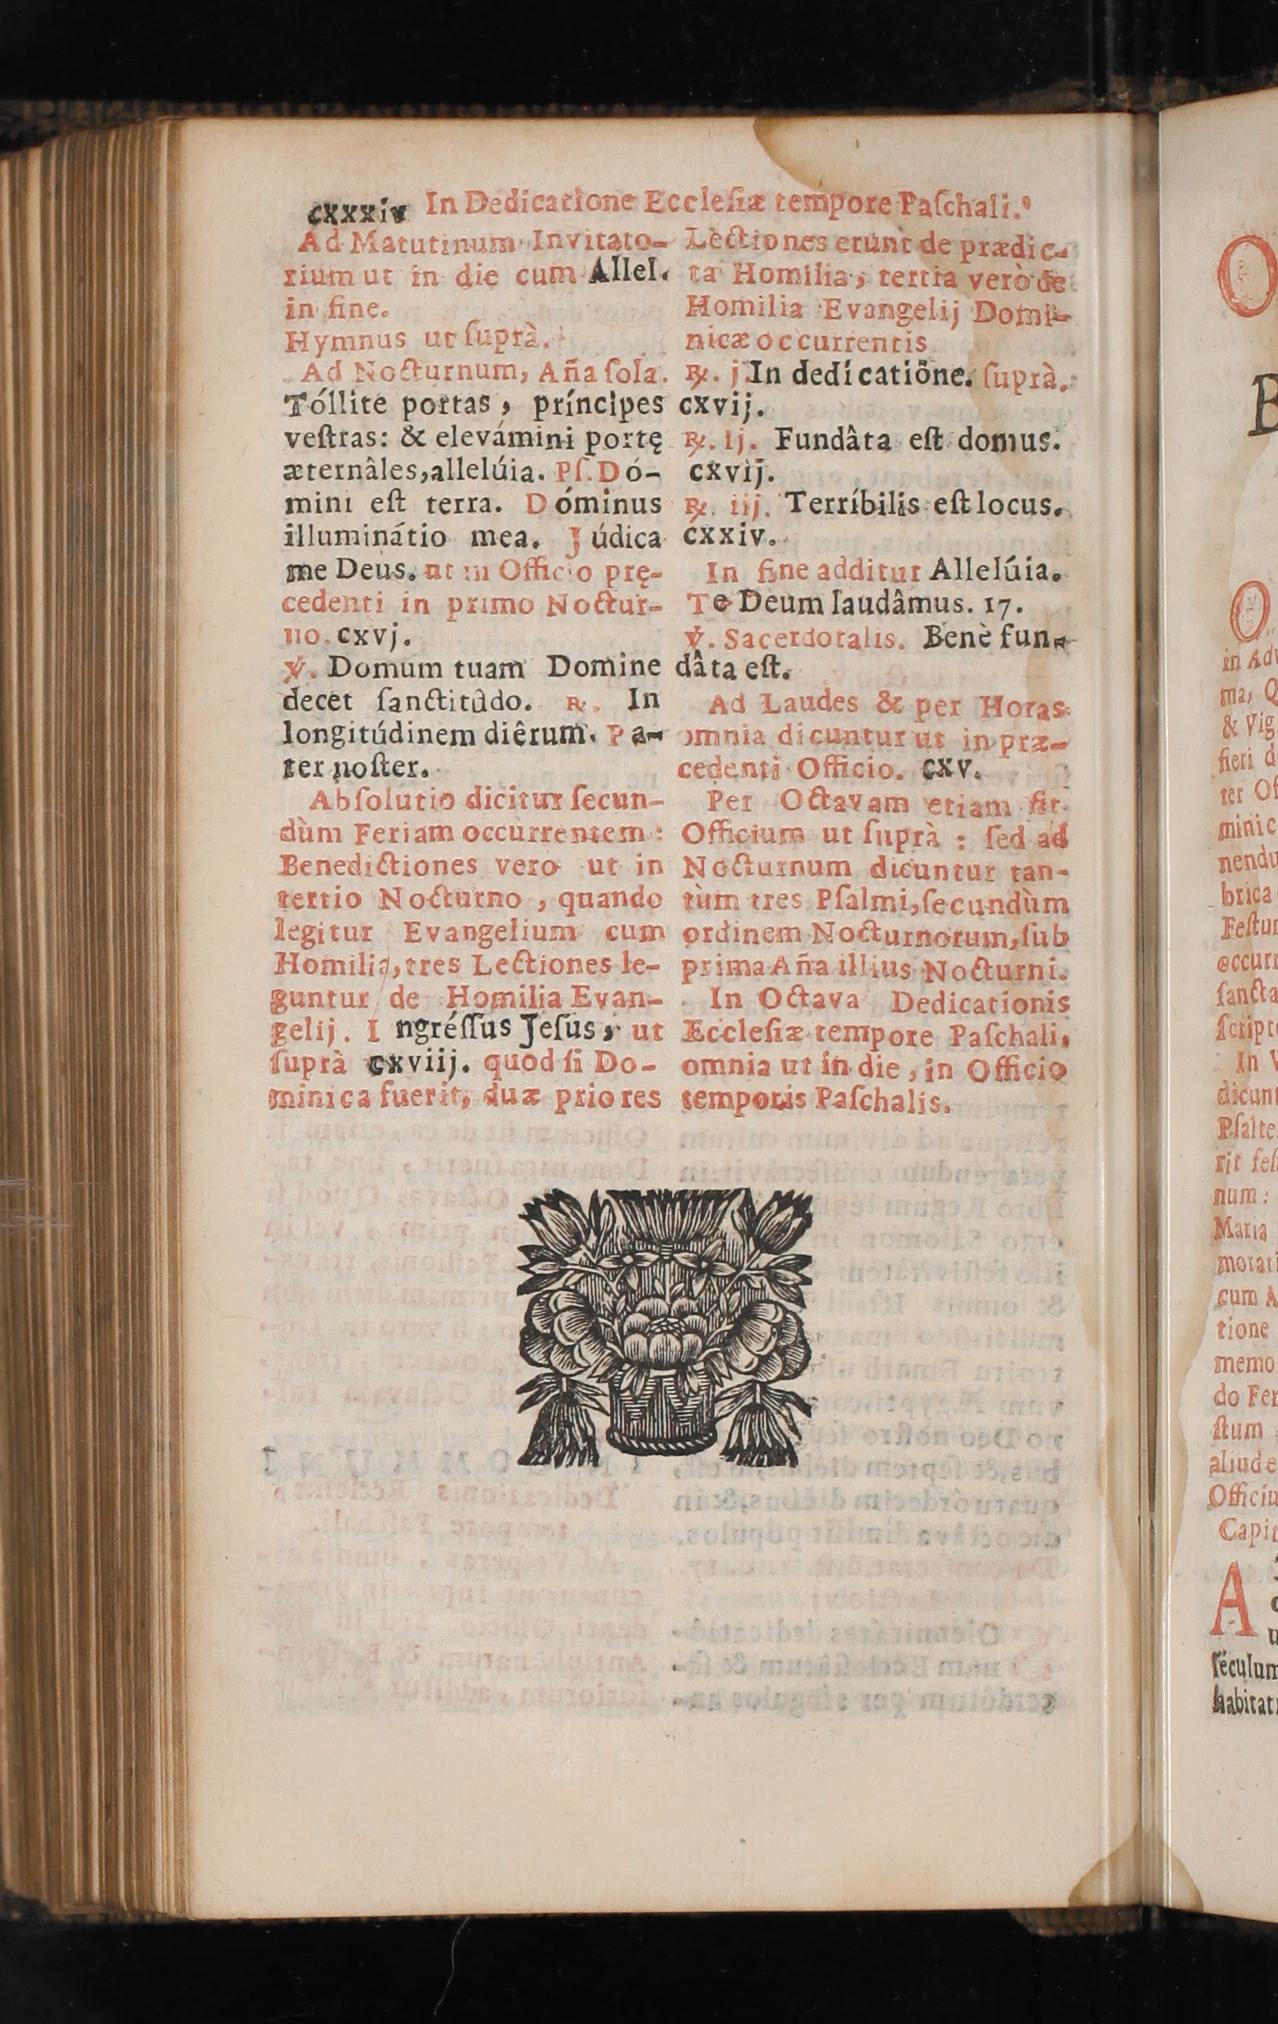 cxxxiv In Dedicatione Eccleſiæ tempore Paſchali.
Ad Matutinum Invitato-
rium ut in die cum Allel.
in fine.
Hymnus ut ſuprà.
Ad Nocturnum, Aña ſola.
Tóllite portas, príncipes
veſtras: & elevámini portę
æternâles, allelúia. Pſ. Dó-
mini eſt terra. Dóminus
illuminátio mea. Júdica
me Deus. ut in Officio prę-
cedenti in primo Noctur-
no. cxvj.
℣. Domum tuam Domine
decet ſanctitûdo. ℟. In
longitúdinem diêrum. Pa-
ter noſter.
Abſolutio dicitur ſecun-
dùm Feriam occurrentem:
Benedictiones vero ut in
tertio Nocturno, quando
legitur Evangelium cum
Homilia, tres Lectiones le-
guntur de Homilia Evan-
gelij. Ingréſſus Jeſus, ut
ſuprà cxviij. quod ſi Do-
minica fuerit, duæ priores
Lectiones erunt de prædic-
ta Homilia, tertia verò de
Homilia Evangelij Domi-
nicæ occurrentis
℟. j. In dedicatiōne. ſuprà.
cxvij.
℟. ij. Fundâta eſt domus.
cxvij.
℟. iij. Terríbilis eſt locus.
cxxiv.
In fine additur Allelúia.
Te Deum laudâmus. 17.
℣. Sacerdotalis. Benè fun-
dâta eſt.
Ad Laudes & per Horas
omnia dicuntur ut in præ-
cedenti Officio. cxv.
Per Octavam etiam fit
Officium ut ſuprà: ſed ad
Nocturnum dicuntur tan-
tùm tres Pſalmi, ſecundùm
ordinem Nocturnorum, ſub
prima Aña illius Nocturni.
In Octava Dedicationis
Eccleſiæ tempore Paſchali,
omnia ut in die, in Officio
temporis Paſchalis.
O
B
O
in Adv
ma, Q
& Vig
fieri d
ter Of
minic
nendu
brica
Feſtum
occurr
ſancta
ſcript
In V
dicunt
Pſalte
rit feſ
num:
Maria
morati
cum A
tione
memo
do Fer
ſtum
aliud e
Officiu
Capit
A
ſéculum
habitat